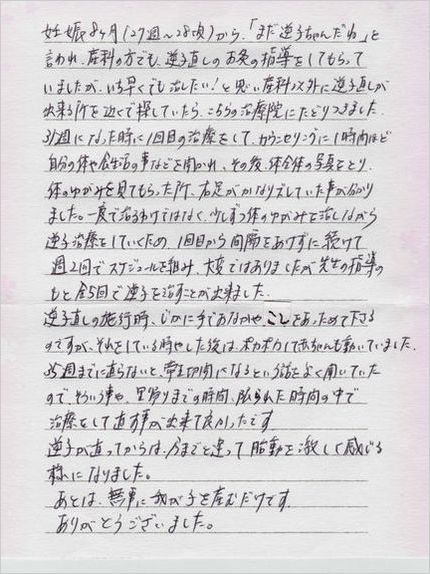 妊娠8ヶ月(27週〜28頃)から、「まだ逆子ちゃんだね」と
言われ、産科の方でも、逆子直しのお灸の指導をしてもらって
いましたが、いち早くでも治したい!と思い産科以外に逆子直しが
出来る所を近くで探していたら、こちらの治療院にたどりつきました。
31週になった時に1回目の治療をして、カウンセリングに1時間ほど
自分の体や食生活の事などを聞かれ、その後、体全体の写真をとり、
体のゆがみを見てもらった所、右足がかなりズレていた事が分かり
ました。一度で治るわけではなく、少しずつ体のゆがみを治しながら
逆子治療をしていくため、1回目から間隔をあけずに続けて
週2回でスケジュールを組み、大変ではありましたが先生の指導の
もと全5回で逆子を治すことが出来ました。
逆子直しの施行時、じかに手でおなかや、こしをあっためて下さる
のですが、それをしている時やした後は、ポカポカして赤ちゃんも動いていました。
35週までに直らないと、帝王切開になるという話をよく聞いていた
ので、そういう事や、里帰りまでの時間、限られた時間の中で
治療をして直す事が出来て良かったです。
逆子が直ってからは、今までと違って胎動を激しく感じる
様になりました。
あとは、無事に我が子を産むだけです。
ありがとうございました。